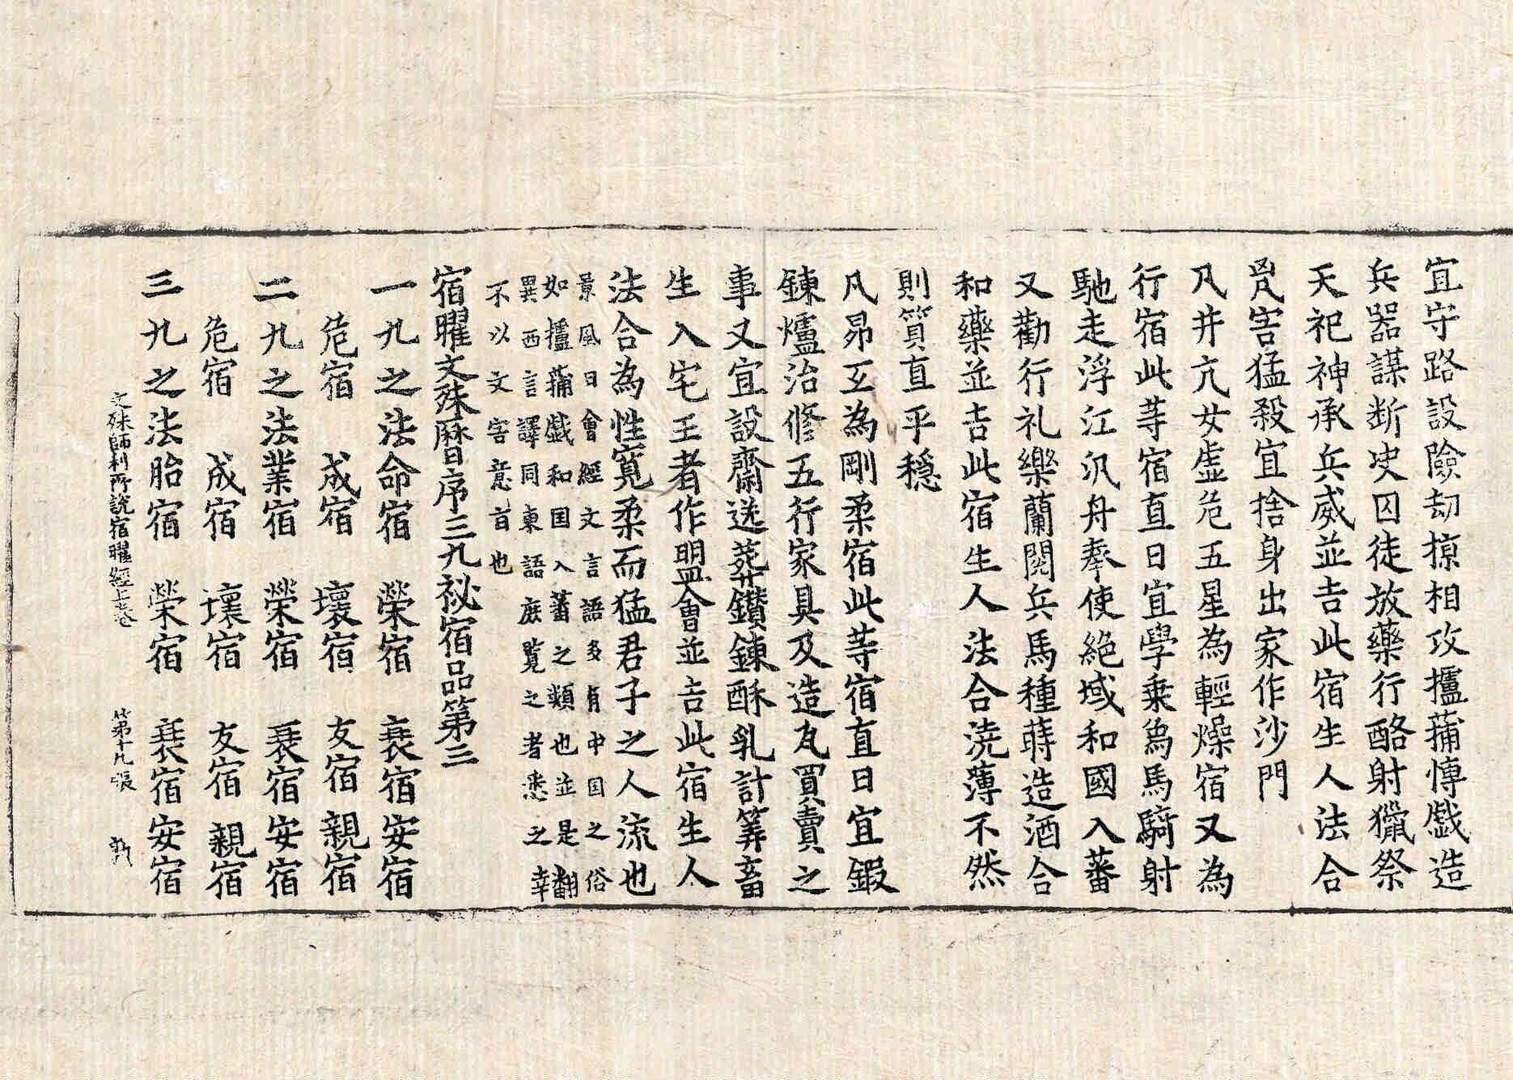 宜守路設險劫掠相攻攎蒱愽戱造
兵器謀断决囚徒放藥行酪射獵祭
天祀神承兵威並吉此宿生人法合
㓙害猛殺宜捨身出家作沙門
凡井亢女虛危五星為輕燥宿又為
行宿此䓁宿直日宜學乗象馬騎射
馳走浮江汎舟奉使絶域和國入蕃
又勸行礼樂蘭閱兵馬種蒔造酒合
和藥並吉此宿生人法合澆薄不然
則質直乎穩
凡昴互為剛柔宿此䓁宿直日宜鍜
鍊爐治修五行家具及造瓦買賣之
事又宜設齋送葬鑚鍊酥乳計筭畜
生入宅王者作盟會並吉此宿生人
法合為性寬柔而猛君子之人流也
景風日會經文言語多有中国之俗
如攎蒱戱和国入蕃之類也並是翻
異西言譯同東語庶覧之者悉之幸
不以文害意旨也
宿曜文殊曆序三九祕宿品第三
一九之法命宿 榮宿 衰宿安宿
危宿 成宿 壞宿 友宿親宿
二九之法業宿 榮宿 衰宿安宿
危宿 成宿 壞宿 友宿親宿
三九之法胎宿 榮宿 衰宿安宿
文殊師利所說宿曜經上卷 第十九張